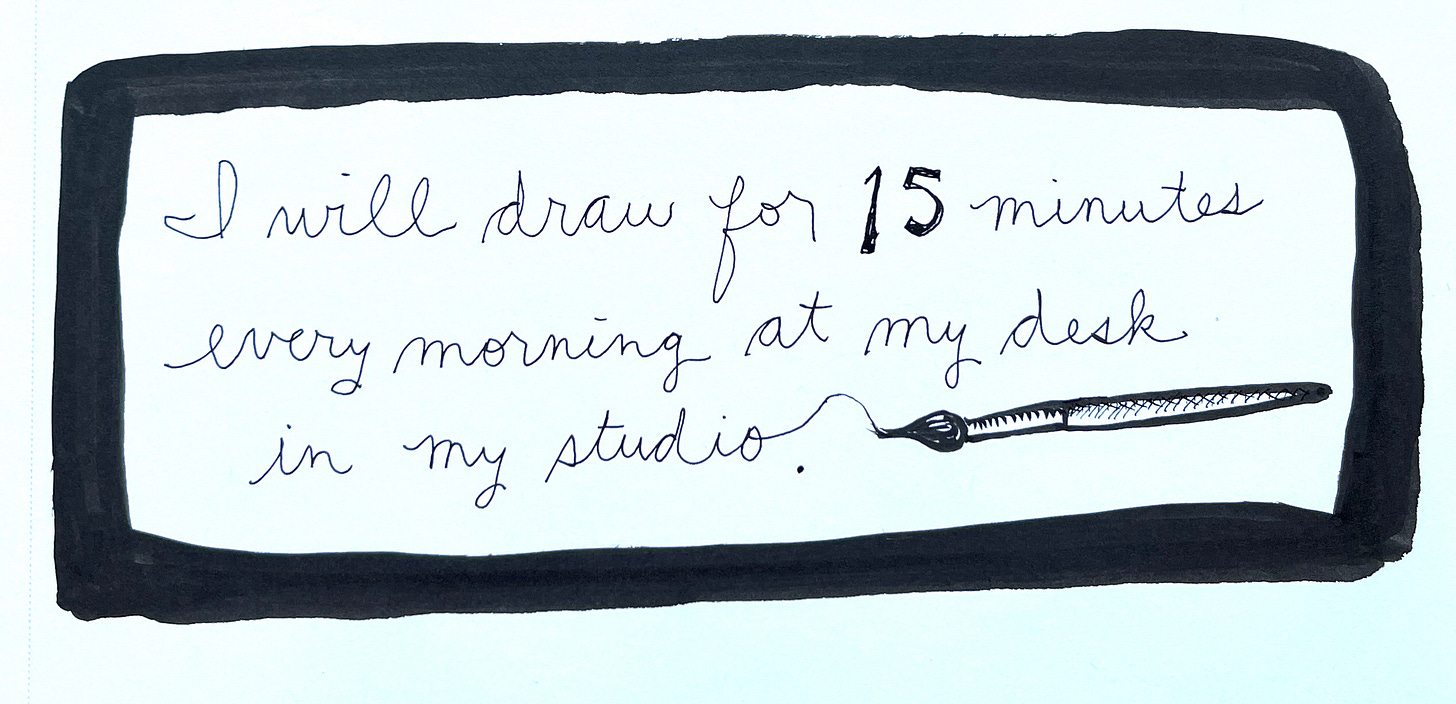 I will draw for 15 minutes
every morning at my desk
in my studio.